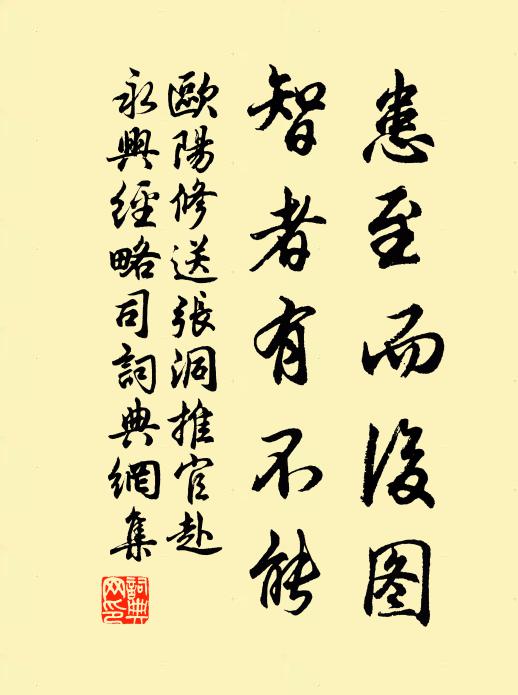 患至而後图
智者有不能
歐陽修送張洞推官赴
永興經略司詞典網集
詞典網印